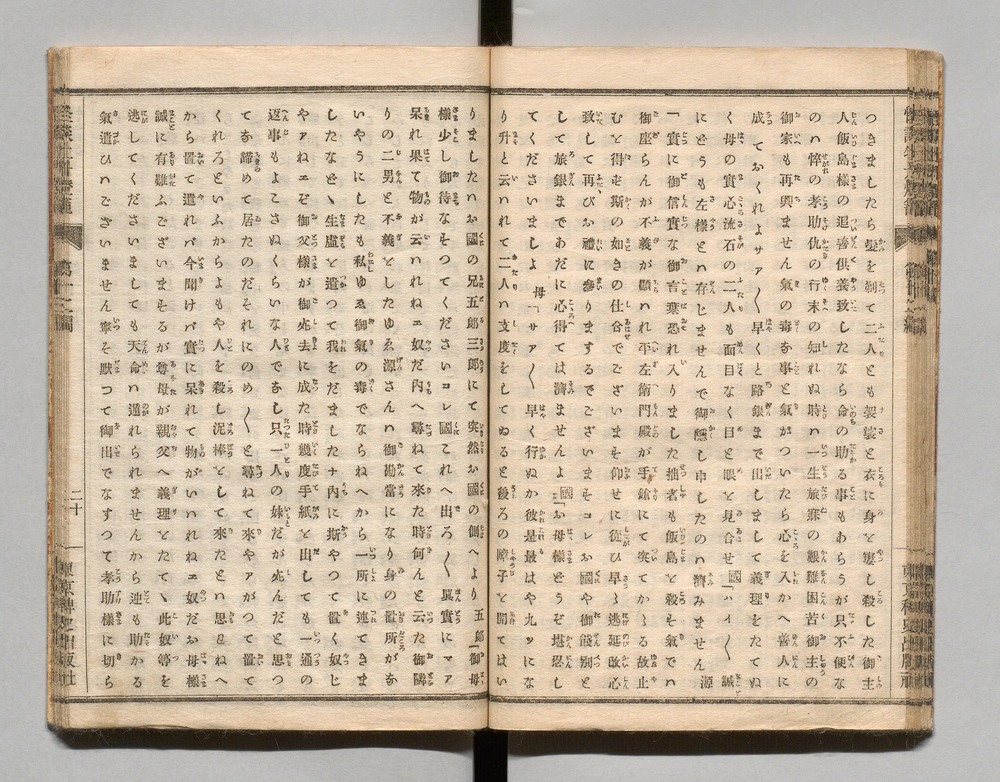 つきましたら髮を剃て二人とも袈裟を衣に身を窶し殺した御主
人飯島様の追善供養致したなら命の助る事もあらうが只不便な
のハ悴の孝助仇の行末の知れぬ時ハ一生旅寐の艱難困苦御主の
御家も再興ません氣の毒な事と氣がついたら心を入かへ善人に
成ておくれよサア〱早くと路銀まで出しまして義理をたてぬ
く母の實心流石の二人も面目なく目と眼を見合せ 國「ハイ〱誠
にどうも左様とハ存じませんで御隱し申したのハ濟みません 源
「實に御信實な御言葉恐れ入りました拙者も飯島を殺す氣でハ
御座らんが不義が顯ハれ平左衛門殿が手鎗にて突てかゝる故止
むを得を斯の如きの仕合でございまを仰せに従ひ早〻逃延改心
致して再びお禮に參りまするでございまをコレお國や御餞別と
して旅銀まであだに心得てハ濟ませんよ 國「お母様どうぞ堪忍し
てくださいましよ 母「サア〱早く行ぬか彼是最はや九ツにな
り升と云ハれて二人ハ支度をしてゐると後ろの障子を開てはい
りましたハお國の兄五郎三郎にて突然お國の側へより 五郎「御母
様少し御待なそつてくださいコレ國これへ出ろ〱眞實にマア
呆れ果て物が云ハれねエ奴だ内へ尋ねて來た時何んと云た御隣
りの二男と不義をしたゆゑ源さんハ御勘當になり身の置所がな
いやうにしたも私ゆゑ御氣の毒でならねへから一所に連てきま
したなどゝ生虚を遣つて我をだましたナ内に斯やつて置く奴じ
やアねエぞ御父様が御死去に成た時幾度手紙を出しても一通の
返事もよこさぬくらいな人でなし只一人の妹だが死んだと思つ
てお諦めて居たのだそれにのめ〱と尋ねて來やアがつて置て
くれろといふからよもや人を殺し泥棒をして來たとハ思ハねへ
から置て遣れバ今聞けバ實に呆れて物がいハれねエ奴だお母様
誠に有難ふございまそるが尊母が親父へ義理をたてゝ此奴等を
逃してくださいましても天命ハ遁れられませんから迚も助かる
氣遣ひハございません寧そ默つて御出でなすつて孝助様に切ら
二十